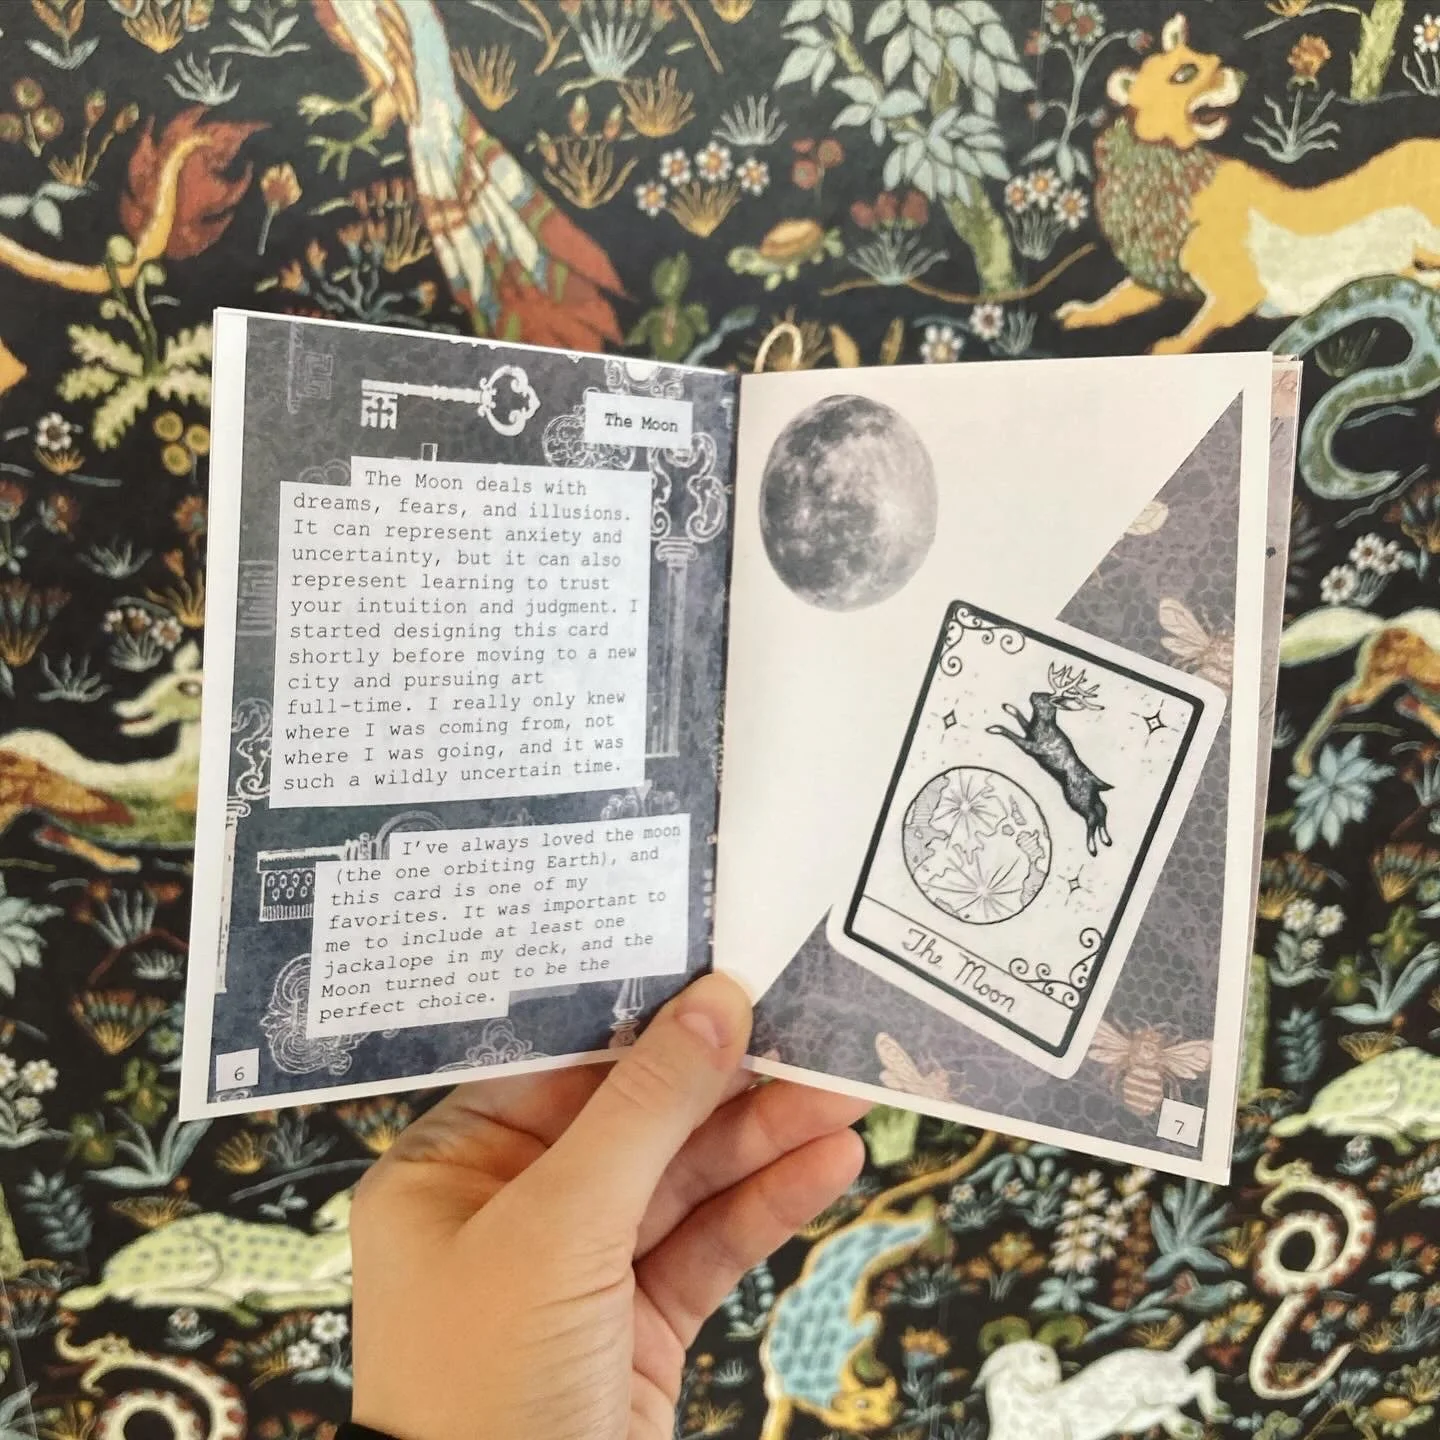 The Moon
The Moon deals with
dreams, fears, and illusions.
It can represent anxiety and
uncertainty, but it can also
represent learning to trust
your intuition and judgment. I
started designing this card
shortly before moving to a new
city and pursuing art
full-time. I really only knew
where I was coming from, not
where I was going, and it was
such a wildly uncertain time.
I've always loved the moon
(the one orbiting Earth), and
this card is one of my
favorites. It was important to
me to include at least one
jackalope in my deck, and the
Moon turned out to be the
perfect choice.
6
The Moon
7